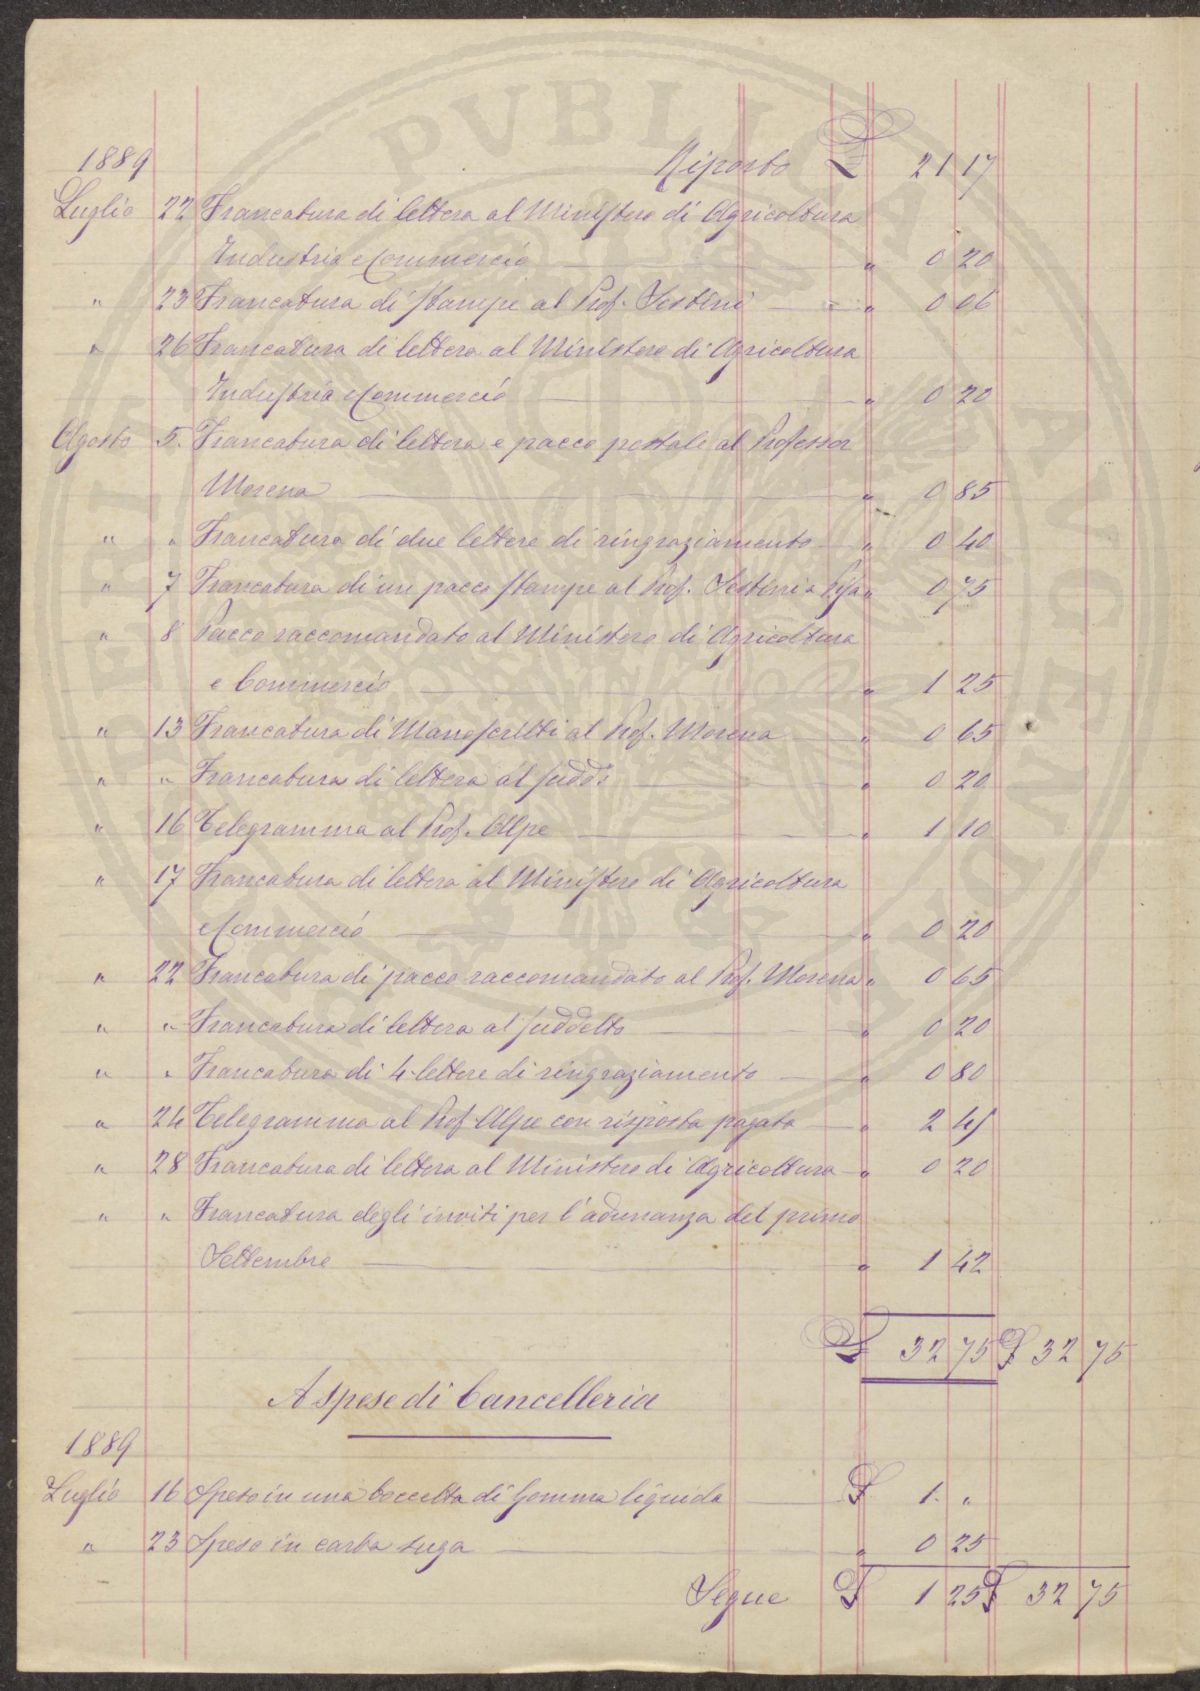 PVBLICAE
1889 Riporto £ 21 17
Luglio 22 Francatura di lettera al Ministero di Agricoltura
Industria e Commercio " 0 20
" 23 Francatura di stampe al Prof. Sestini " 0 06
" 26 Francatura di lettera al Ministero di Agricoltura
Industria e Commercio " 0 20
Agosto 5. Francatura di lettera e pacco postale al Professor
Morena " 0 85
" " Francatura di due lettere di ringraziamento " 0 40
" 7 Francatura di un pacco stampe al Prof. Sestini a Pisa " 0 75
" 8 Pacco raccomandato al Ministero di Agricoltura
e Commercio " 1 25
" 13 Francatura di Manoscritti al Prof. Morena " 0 65
" " Francatura di lettera al sudd.° " 0 20
" 16 Telegramma al Prof. Alpe " 1 10
" 17 Francatura di lettera al Ministero di Agricoltura
e Commercio " 0 20
" 22 Francatura di pacco raccomandato al Prof. Morena " 0 65
" " Francatura di lettera al suddetto " 0 20
" " Francatura di 4 lettere di ringraziamento " 0 80
" 24 Telegramma al Prof Alpe con risposta pagata " 2 45
" 28 Francatura di lettera al Ministero di Agricoltura " 0 20
" " Francatura degli inviti per l'adunanza del primo
Settembre " 1 42
£ 32 75 £ 32 75
A spese di Cancelleria
1889
Luglio 16 Speso in una boccetta di Gomma liquida £ 1. "
" 23 Speso in carta suga " 0 25
Segue £ 1 25 £ 32 75